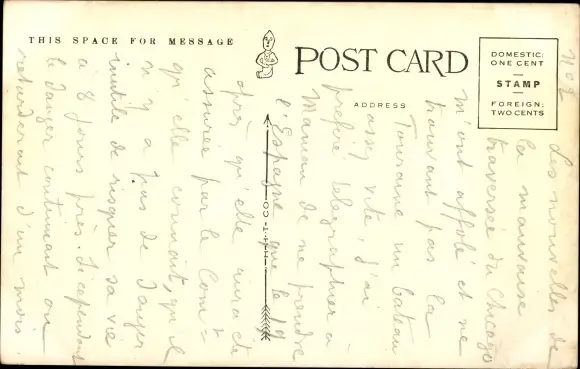 THIS SPACE FOR MESSAGE
POST CARD
ADDRESS
DOMESTIC:
ONE CENT
STAMP
FOREIGN:
TWO CENTS
CO-T-H-A-
No 2
Les nouvelles de
la mauvaise
traversée du Chicago
m'ont affolé et ne
trouvant pas la
Touraine un bateau
assez vite j'ai
préféré télégraphier à
Maman de ne prendre
l'Espagne que le 19
après qu'elle aura été
assurée par le Com^t
qu'elle connait, qu'il
n'y a pas de danger
inutile de risquer sa vie
à 8 jours près. Si cependant
le danger continuait on
retarderait d'un mois.